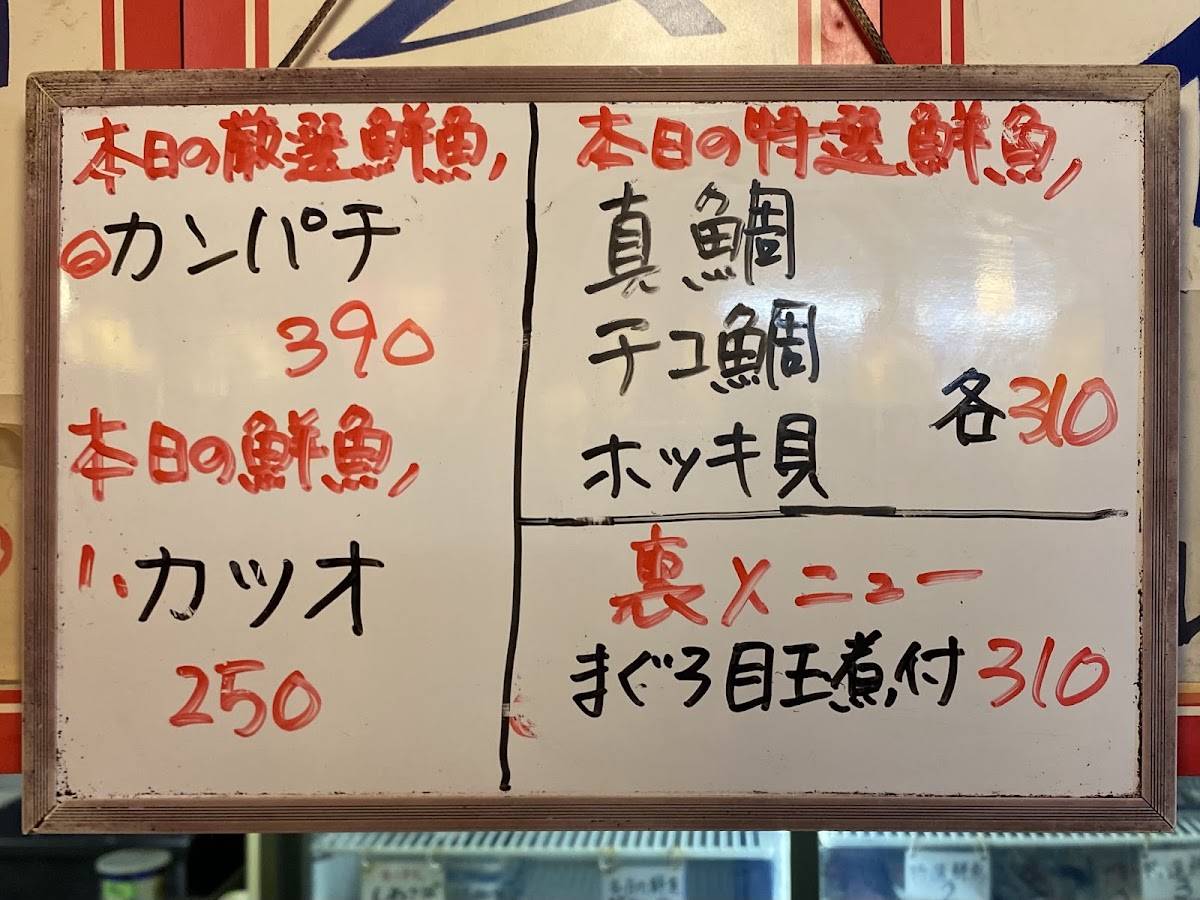 本日の厳選鮮魚
カンパチ
390
本日の鮮魚
1、カツオ
250
本日の特選鮮魚
真鯛
チコ鯛
ホッキ貝
各310
裏メニュー
まぐろ目玉煮付 310